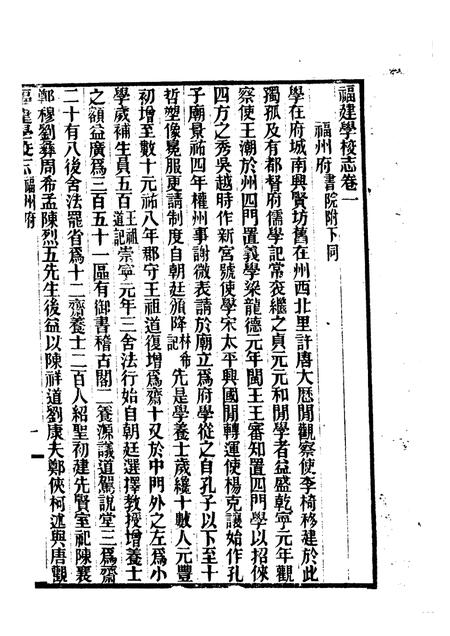 福建學校志卷一
福州府 書院附下同
學在府城南興賢坊舊在州西北里許唐大曆閒觀察使李椅移建於此
獨孤及有都督府儒學記常袞繼之貞元元和閒學者益盛乾寧元年觀
察使王潮於州四門置義學梁龍德元年閩王王審知置四門學以招俠
四方之秀吳越時作新宮號使學宋太平興國閒轉運使楊克讓始作孔
子廟景祐四年權州事謝微表請於廟立爲府學從之自孔子以下至十
哲塑像冕服更請制度自朝廷頒降林希記先是學養士歲纔十數人元豐
初增至數十元祐八年郡守王祖道復增爲齋十又於中門外之左爲小
學歲補生員五百王祖道記崇寧元年三舍法行始自朝廷選擇教授增養士
之額益廣爲三百五十一區有御書稽古閣二養源議道駕說堂三爲齋
二十有八後舍法罷省爲十二齋養士二百人紹聖初建先賢室祀陳襄
鄭穆劉彝周希孟陳烈五先生後益以陳祥道劉康夫鄭俠柯述與唐觀
福建學校志 福州府
一